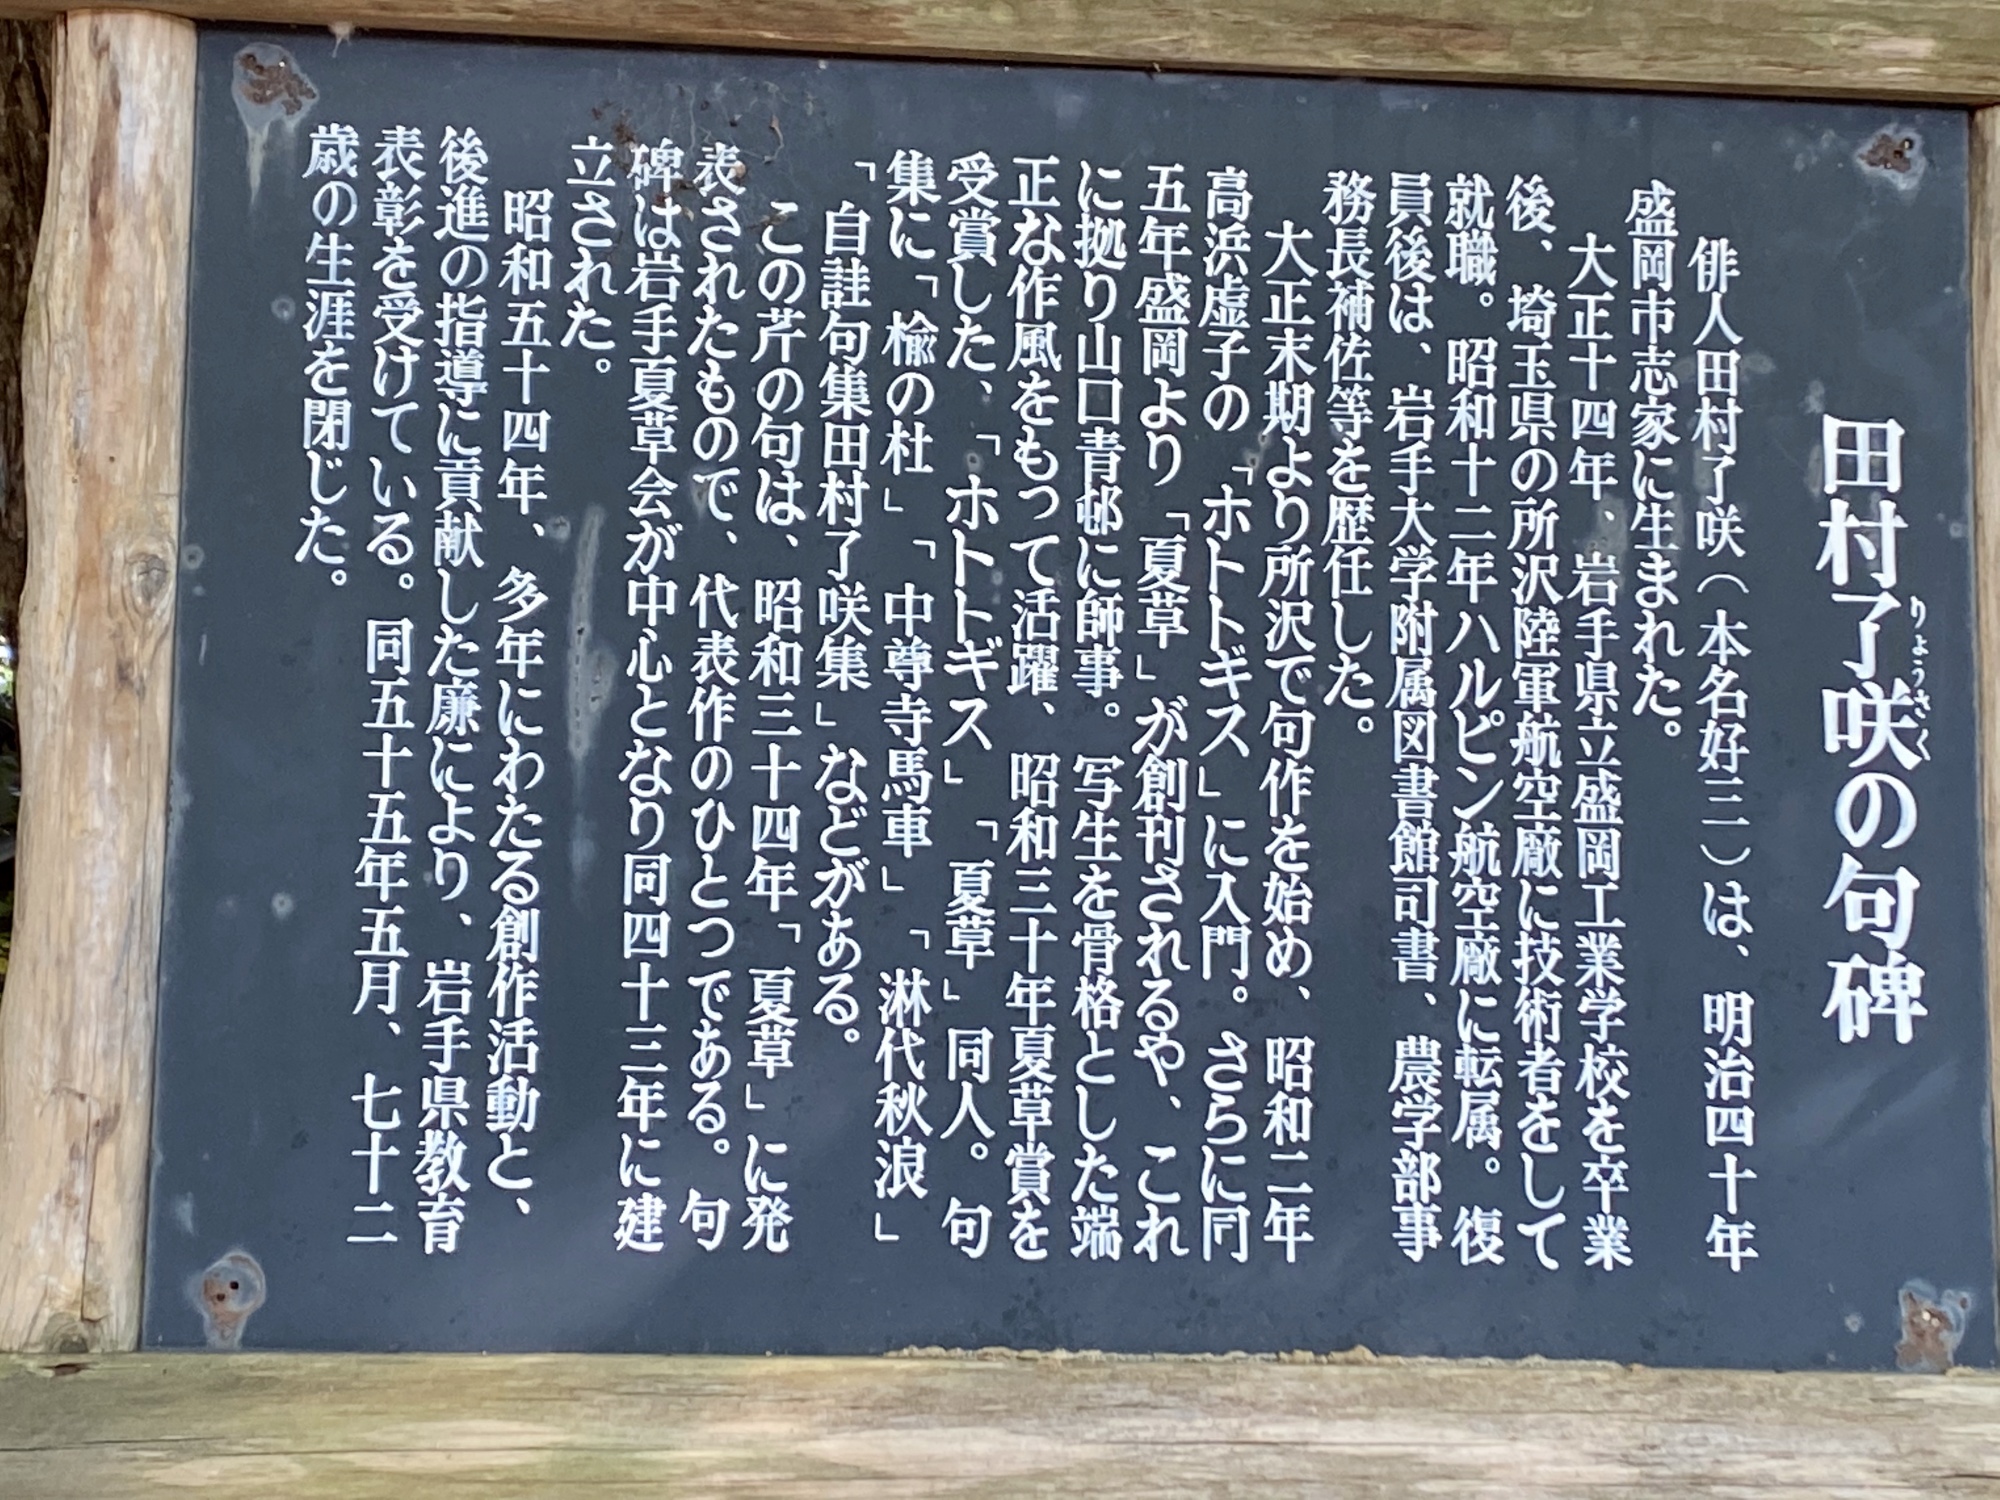 田村了咲の句碑
りょうさく
俳人田村了咲（本名好三）は、明治四十年
盛岡市志家に生まれた。
大正十四年、岩手県立盛岡工業学校を卒業
後、埼玉県の所沢陸軍航空廠に技術者をして
就職。昭和十二年ハルピン航空廠に転属。復
員後は、岩手大学附属図書館司書、農学部事
務長補佐等を歴任した。
大正末期より所沢で句作を始め、昭和二年
高浜虚子の「ホトトギス」に入門。さらに同
五年盛岡より「夏草」が創刊されるや、これ
に拠り山口青邨に師事。写生を骨格とした端
正な作風をもって活躍、昭和三十年夏草賞を
受賞した、「ホトトギス」「夏草」同人。句
集に「楡の杜」「中尊寺馬車」「淋代秋浪」
「自註句集田村了咲集」などがある。
この芹の句は、昭和三十四年「夏草」に発
表されたもので、代表作のひとつである。句
碑は岩手夏草会が中心となり同四十三年に建
立された。
昭和五十四年、多年にわたる創作活動と、
後進の指導に貢献した廉により、岩手県教育
表彰を受けている。同五十五年五月、七十二
歳の生涯を閉じた。